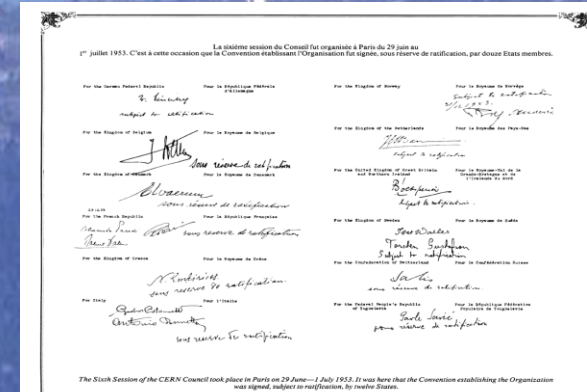 La sixième session du Conseil fut organisée à Paris du 29 juin au
1er juillet 1953. C'est à cette occasion que la Convention établissant l'Organisation fut signée, sous réserve de ratification, par douze Etats membres.
For the German Federal Republic Pour la République Fédérale d'Allemagne
subject to ratification
For the Kingdom of Belgium Pour le Royaume de Belgique
sous réserve de ratification
For the Kingdom of Denmark Pour le Royaume de Danemark
sous réserve de ratification
For the French Republic Pour la République Française
sous réserve de ratification
For the Kingdom of Greece Pour le Royaume de Grèce
sous reserve de ratification.
For Italy Pour l'Italie
Antonio
sous reserve de ratification
For the Kingdom of Norway Pour le Royaume de Norvège
Subject to ratification
For the Kingdom of the Netherlands Pour le Royaume des Pays-Bas
subject to ratification
For the United Kingdom of Great Britain and Northern Ireland Pour le Royaume-Uni de la Grande-Bretagne et de l'Irlande du Nord
subject to ratification
For the Kingdom of Sweden Pour le Royaume de Suède
Torsten Gustafson
Subject to ratification
For the Confederation of Switzerland Pour la Confédération Suisse
sous réserve de ratification.
For the Federal People's Republic of Yugoslavia Pour la République Fédérative Populaire de Yougoslavie
Pavle Savić
sous réserve de ratification
The Sixth Session of the CERN Council took place in Paris on 29 June—1 July 1953. It was here that the Convention establishing the Organization
was signed, subject to ratification, by twelve States.